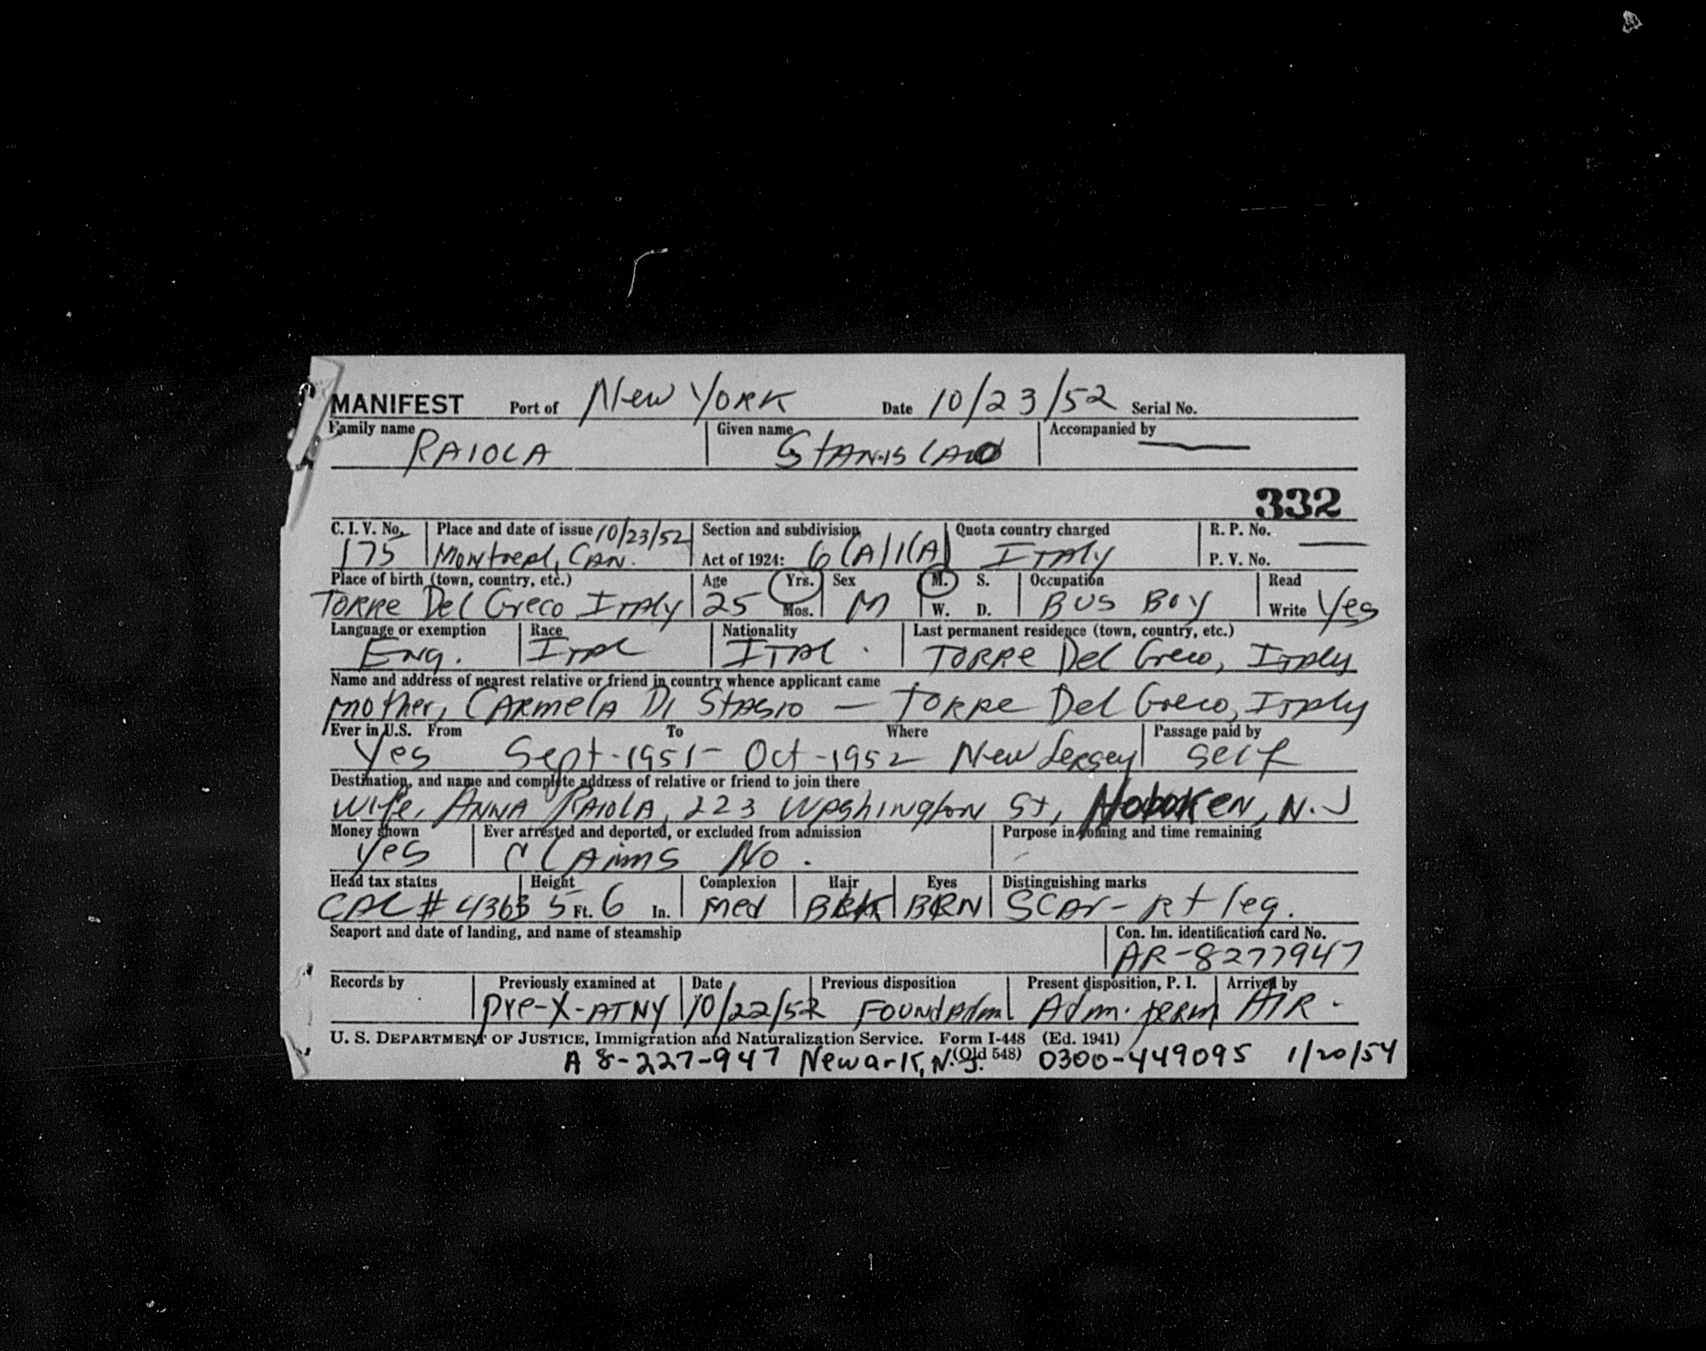 MANIFEST Port of New York Date 10/23/52 Serial No.
Family name RAIOLA Given name Stanislao Accompanied by —
332
C. I. V. No. Place and date of issue 10/23/52 Section and subdivision Quota country charged R. P. No. —
175 Montreal, Can. Act of 1924: 6(A)1(A) Italy P. V. No.
Place of birth (town, country, etc.) Age Yrs. Sex M. S. Occupation Read
Torre Del Greco Italy 25 Mos. M W. D. Bus Boy Write Yes
Language or exemption Race Nationality Last permanent residence (town, country, etc.)
Eng. Ital Ital. Torre Del Greco, Italy
Name and address of nearest relative or friend in country whence applicant came
mother, Carmela Di Stasio — Torre Del Greco, Italy
Ever in U.S. From To Where Passage paid by
Yes Sept-1951- Oct-1952 New Jersey self
Destination, and name and complete address of relative or friend to join there
wife, Anna Raiola, 223 Washington St, Hoboken, N.J
Money shown Ever arrested and deported, or excluded from admission Purpose in coming and time remaining
yes Claims No.
Head tax status Height Complexion Hair Eyes Distinguishing marks
CAC# 4363 5 Ft. 6 In. Med BRK BRN Scar - Rt leg.
Seaport and date of landing, and name of steamship Con. Im. identification card No.
AR-8277947
Records by Previously examined at Date Previous disposition Present disposition, P. I. Arrived by
pre-X-ATNY 10/22/52 Found Adm Adm. perm AIR.
U. S. DEPARTMENT OF JUSTICE, Immigration and Naturalization Service. Form I-448 (Ed. 1941)
(Old 548)
A 8-227-947 Newark, N.J. 0300-449095 1/20/54